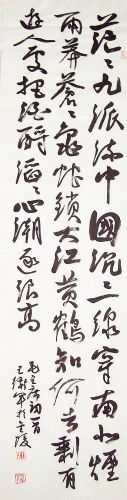 茫々九派流中國沉々一線穿南北煙
雨莽蒼々龜蛇鎖大江黃鶴知何去剩有
遊人處把酒酹滔々心潮逐浪高
毛主席詞一首